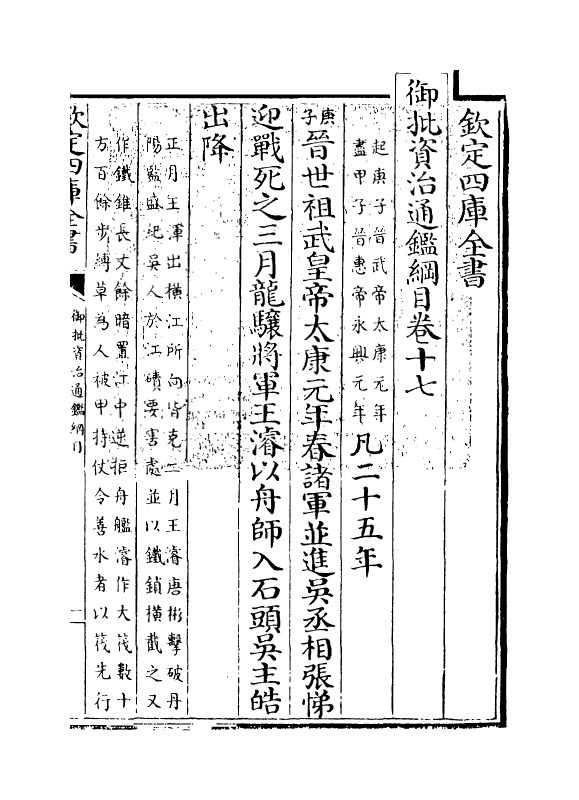 欽定四庫全書
御批資治通鑑綱目卷十七
起庚子晉武帝太康元年
盡甲子晉惠帝永興元年
凡二十五年
庚子
晉世祖武皇帝太康元年春諸軍並進吳丞相張悌
迎戰死之三月龍驤將軍王濬以舟師入石頭吳主皓
出降
正月王渾出橫江所向皆克二月王濬唐彬擊破丹
陽監盛紀吳人於江磧要害處並以鐵鎖橫截之又
作鐵錐長丈餘暗置江中逆拒舟艦濬作大筏數十
方百餘步縛草為人被甲持仗令善水者以筏先行
欽定四庫全書
御批資治通鑑綱目
一